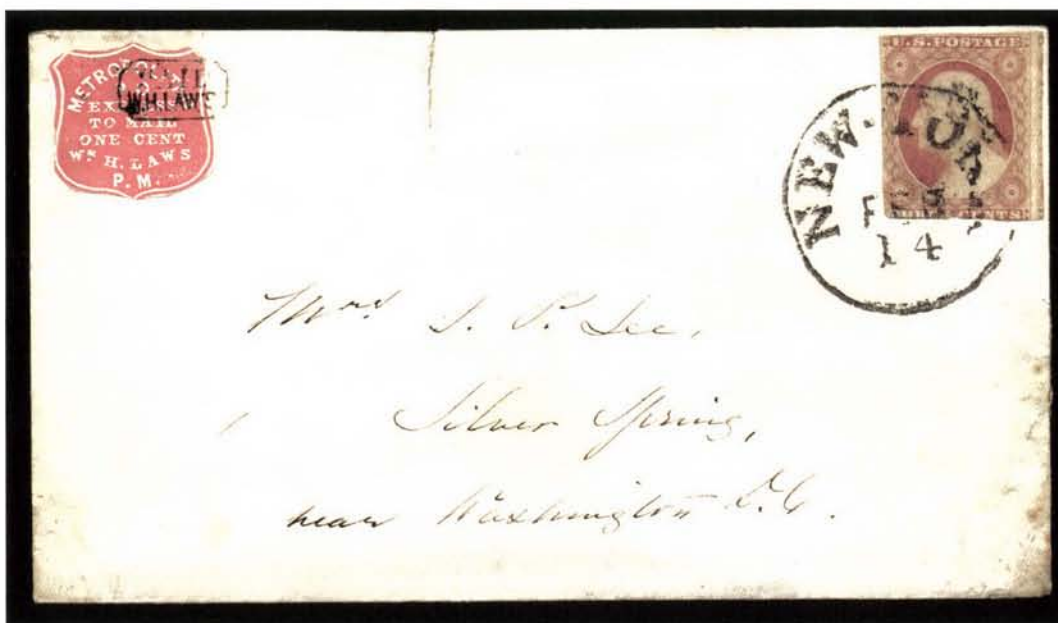 METROPOLITAN
EXPRESS
TO MAIL
ONE CENT
Wm H. LAWS
P. M.
W.H.LAWS
U.S. POSTAGE
THREE CENTS
NEW-YORK
FEB
14
Mrs. S. P. Lee,
Silver Spring,
near Washington D.C.